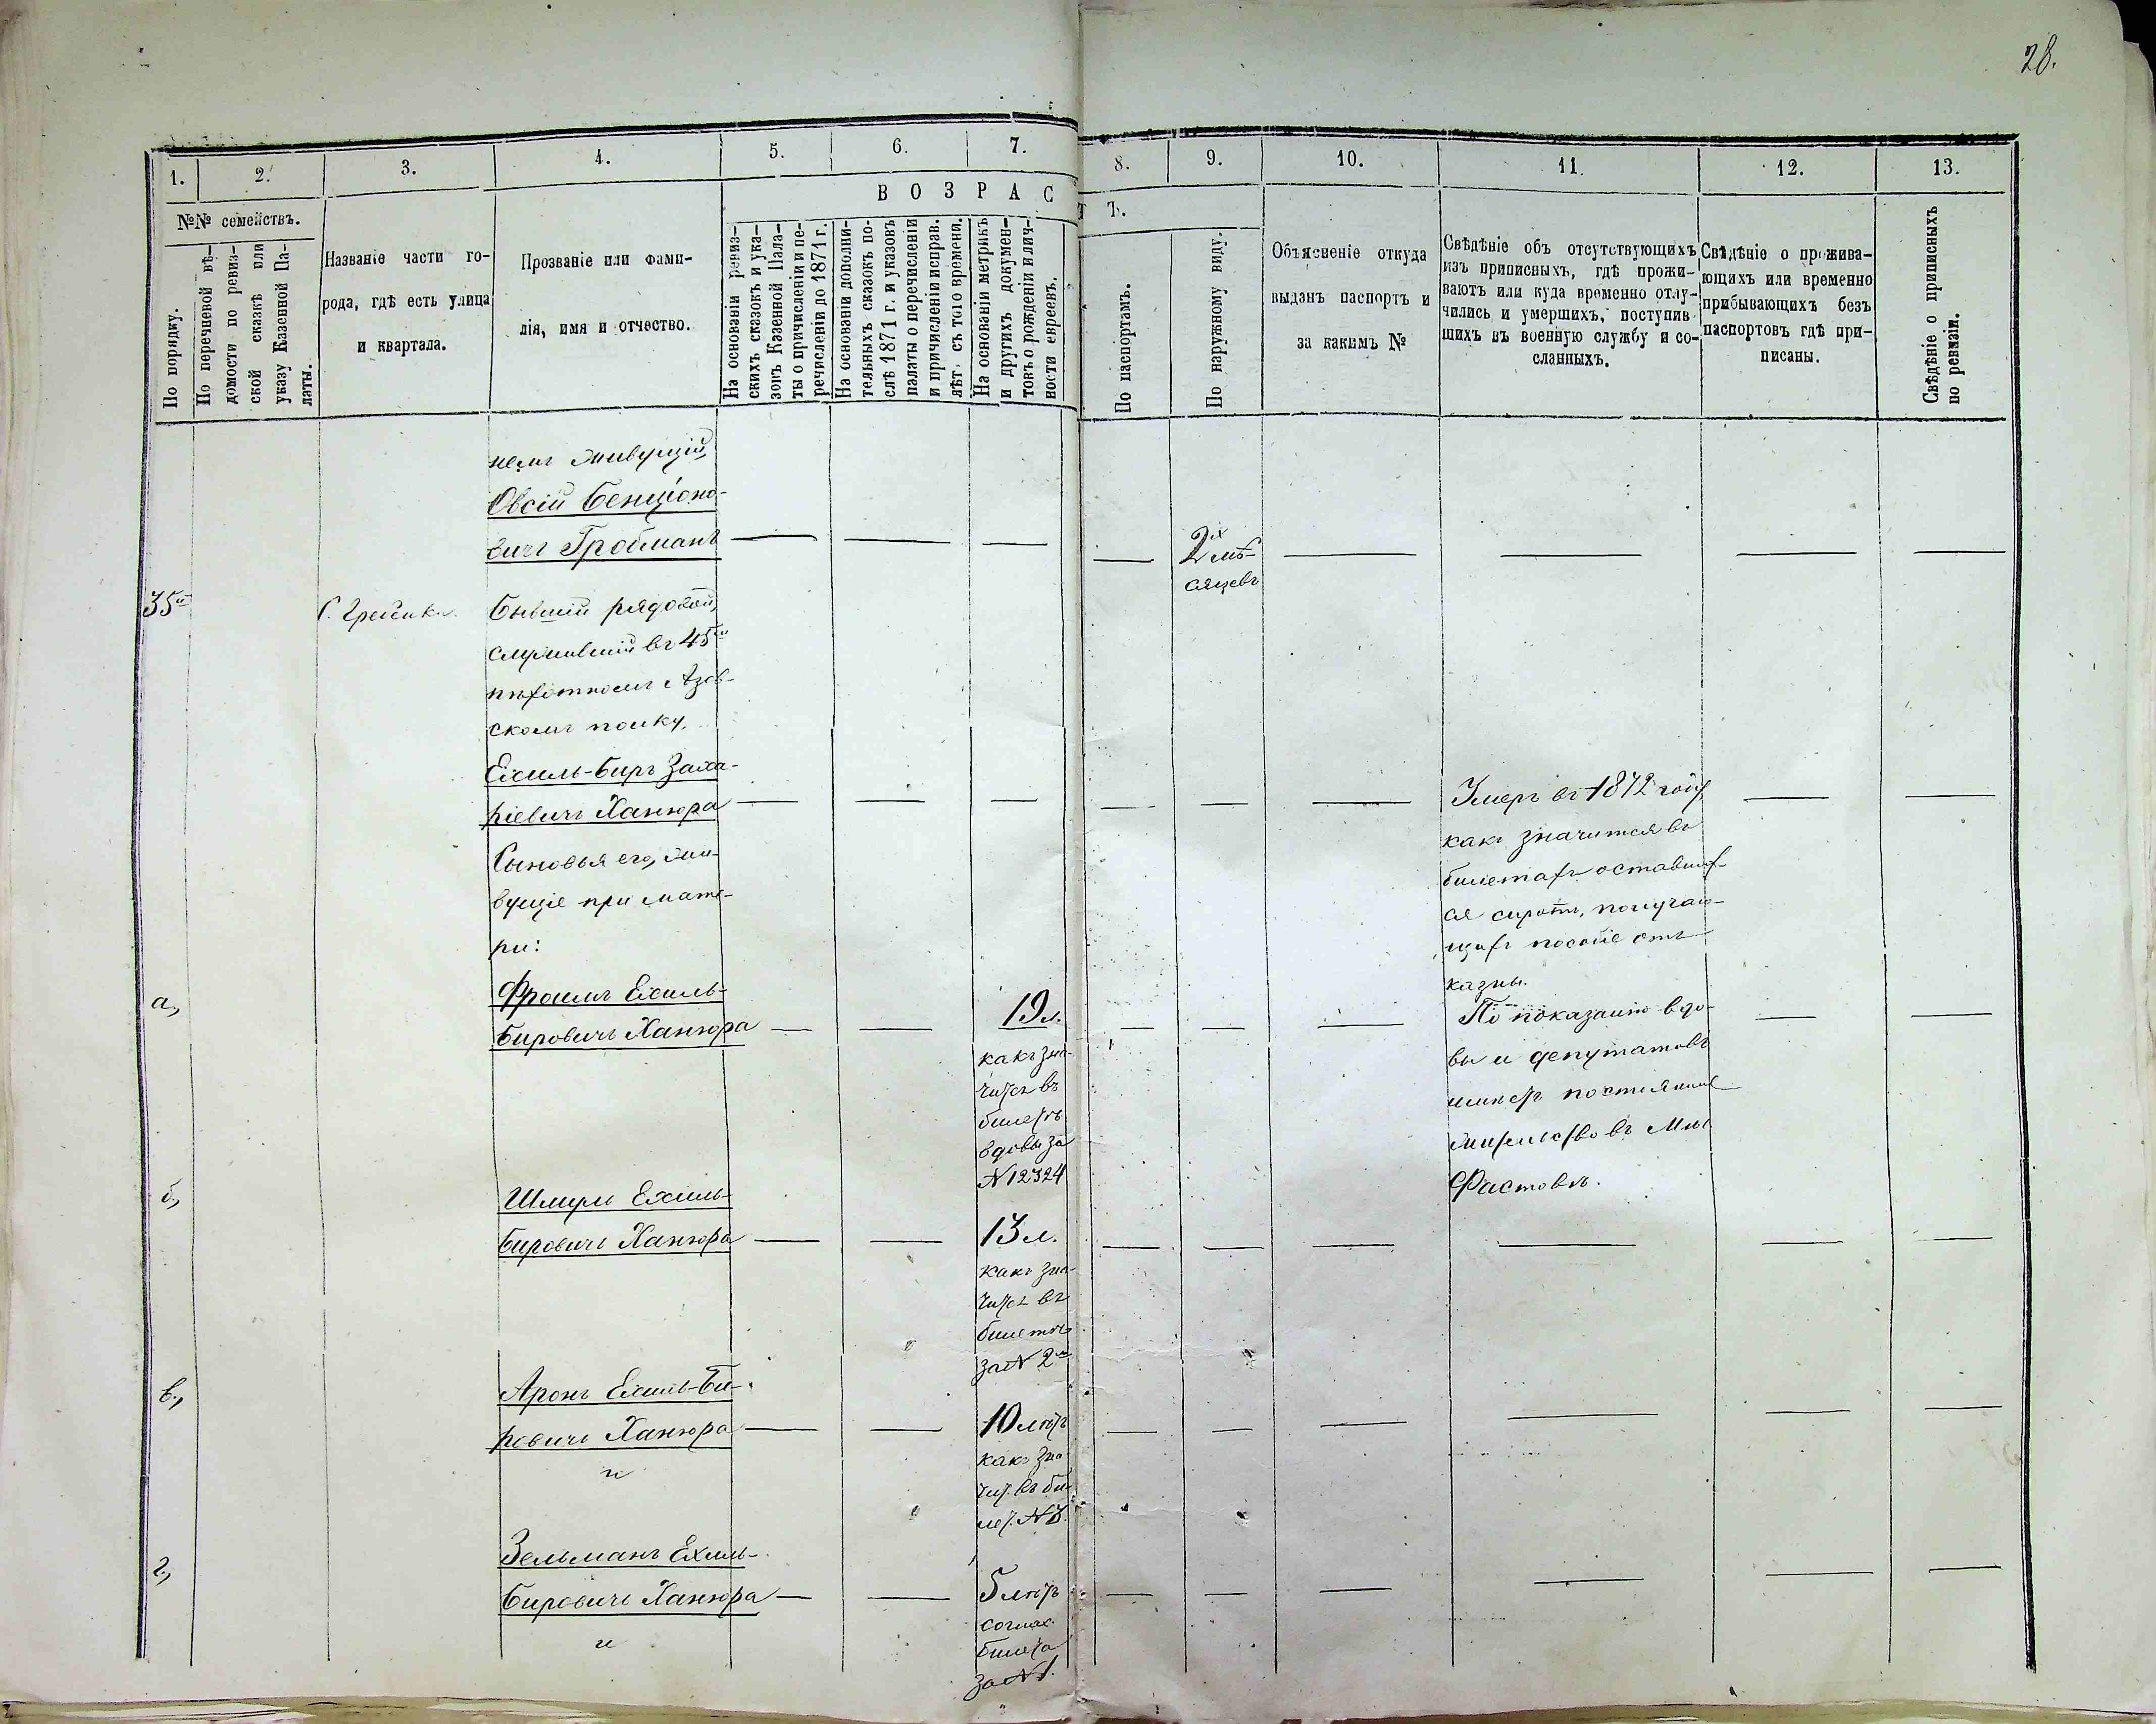 28.
1. 2. 3. 4. 5. 6. 7. 8. 9. 10. 11. 12. 13.
№№ семействъ.
По порядку.
По перечневой вѣ-
домости по ревиз-
ской сказкѣ или
указу Казенной Па-
латы.
Названіе части го-
рода, гдѣ есть улица
и квартала.
Прозваніе или фами-
лія, имя и отчество.
ВОЗРАСТЪ.
На основаніи ревиз-
скихъ сказокъ и ука-
зокъ Казенной Пала-
ты о причисленіи и пе-
речисленіи до 1871 г.
На основаніи дополни-
тельныхъ сказокъ по-
слѣ 1871 г. и указовъ
палаты о перечисленіи
и причисленіи исправ.
лѣт. съ того времени.
На основаніи метрикъ
и другихъ докумен-
товъ о рожденіи и лич-
ности евреевъ.
По паспортамъ.
По наружному виду.
Объясненіе откуда
выданъ паспортъ и
за какимъ №
Свѣдѣніе объ отсутствующихъ
изъ приписныхъ, гдѣ прожи-
ваютъ или куда временно отлу-
чились и умершихъ, поступив
шихъ въ военную службу и со-
сланныхъ.
Свѣдѣніе о прожива-
ющихъ или временно
прибывающихъ безъ
паспортовъ гдѣ при-
писаны.
Свѣдѣніе о приписныхъ
по ревизіи.
немъ живущій,
Овсій Бенціоно-
вичъ Гробманъ
2х мѣ-
сяцевъ
35й
Бывшій рядовой,
служившій въ 45м
пѣхотномъ Азов-
скомъ полку,
Ехиль-Биръ Заха-
ріевичъ Ханюра
Умеръ въ 1872 году,
какъ значится въ
билетахъ оставших-
ся сиротъ, получаю-
щихъ пособіе отъ
казны.
Сыновья его, жи-
вущіе при мате-
ри:
а,
Фроимъ Ехиль-
Бировичъ Ханюра
19 л.
какъ зна-
чится въ
билетѣ
вдовы за
№ 12324
По показанію вдо-
вы и депутатовъ
имѣетъ постоянное
жительство въ
Фастовѣ.
б,
Шмуль Ехиль-
Бировичъ Ханюра
13 л.
какъ зна-
чится въ
билетѣ
за № 2м
в,
Аронъ Ехиль-Би-
ровичъ Ханюра
и
10 лѣтъ
какъ зна
чит. въ би-
лет. № 3.
г,
Зельманъ Ехиль-
Бировичъ Ханюра
и
5 лѣтъ
соглас.
билета
за № 1.